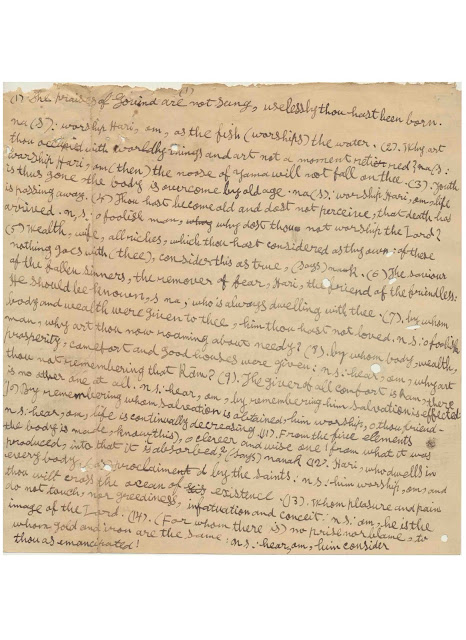 (1)
(1) The praises of Govind are not sung, uselessly thou hast been born.
na (s): worship Hari, om, as the fish (worships) the water. (2). Why art
thou occupied with worldly things and art not a moment retired? na(s):
worship Hari, om (then) the noose of Yama will not fall on thee. (3). Youth
is thus gone the body is overcome by old age. na(s): worship Hari, om, life
is passing away. (4) Thou hast become old and dost not perceive, that death has
arrived. n.s: o foolish man, why dost thou not worship the Lord?
(5) Wealth, wife, all riches, which thou hast considered as thy own: of these
nothing goes with (thee), consider this as true, (says) nanak. (6) The saviour
of the fallen sinners, the remover of fear, Hari, the friend of the friendless:
He should be known, s na, who is always dwelling with thee. (7). by whom
body and wealth were given to thee, him thou hast not loved. n.s: o foolish
man, why art thou now roaming about needy? (8). by whom body, wealth,
prosperity, comfort and good houses were given: n.s: hear, om, why art
thou not remembering that Rām? (9). The giver of all comfort is Ram, there
is no other one at all. n.s: hear, om, by remembering him salvation is effected.
10) By remembering whom salvation is obtained, him worship, o thou friend-
n.s: hear, om, life is continually decreasing. (11). From the five elements
the body is made, know (this), o clever and wise one! from what it was
produced, into that it is absorbed, (says) nanak (12). Hari, who dwells in
every body, is as proclaimed by the saints. n.s: him worship, om, and
thou wilt cross the ocean of existence. (13). Whom pleasure and pain
do not touch, nor greediness, infatuation and conceit: n.s: om, he is the
image of the Lord. (14). (For whom there is) no praise nor blame, to
whom gold and iron are the same: n.s: hear, om, him consider
thou as emancipated!